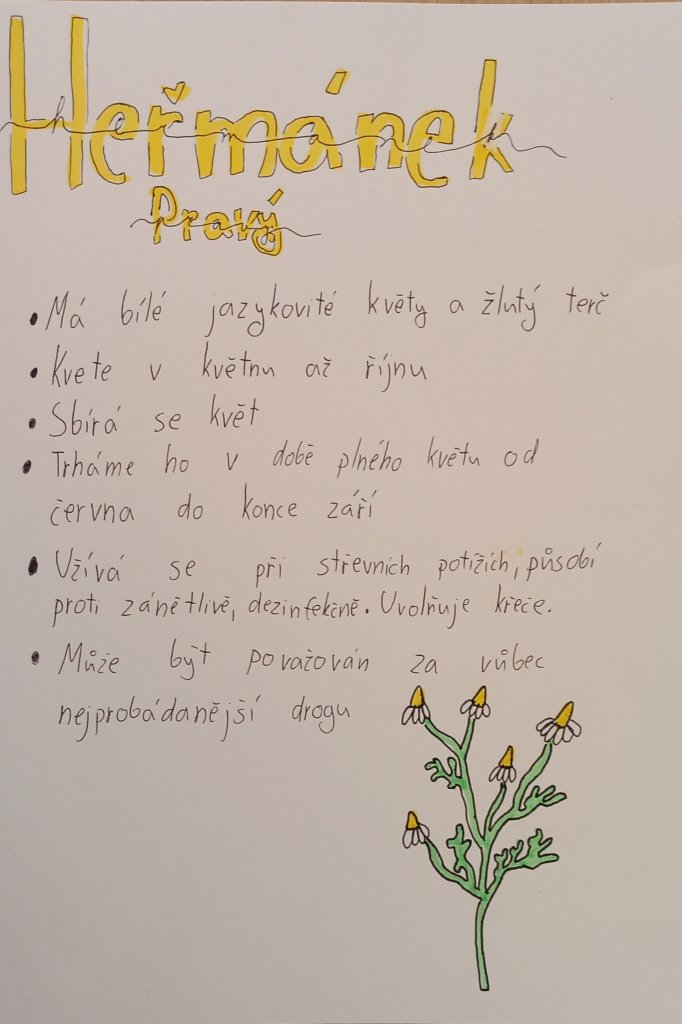 Heřmánek
heřmánek
Pravý
• Má bílé jazykovité květy a žlutý terč
• Kvete v květnu až říjnu
• Sbírá se květ
• Trháme ho v době plného květu od
června do konce září
• Užívá se při střevních potížích, působí
proti zánětlivě, dezinfekčně. Uvolňuje křeče.
• Může být považován za vůbec
nejprobádanější drogu